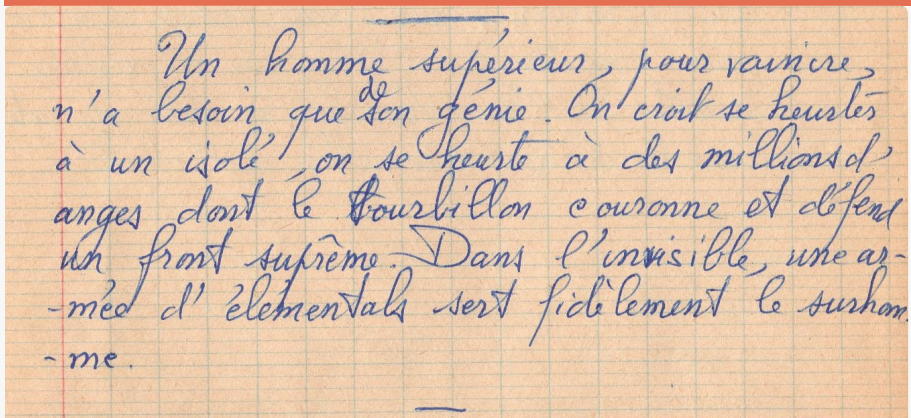 Un homme supérieur, pour vaincre,
n'a besoin que de son génie. On croit se heurter
à un isolé, on se heurte à des millions d'
anges dont le tourbillon couronne et défend
un front suprême. Dans l'invisible, une ar-
-mée d'élementals sert fidèlement le surhom-
-me.